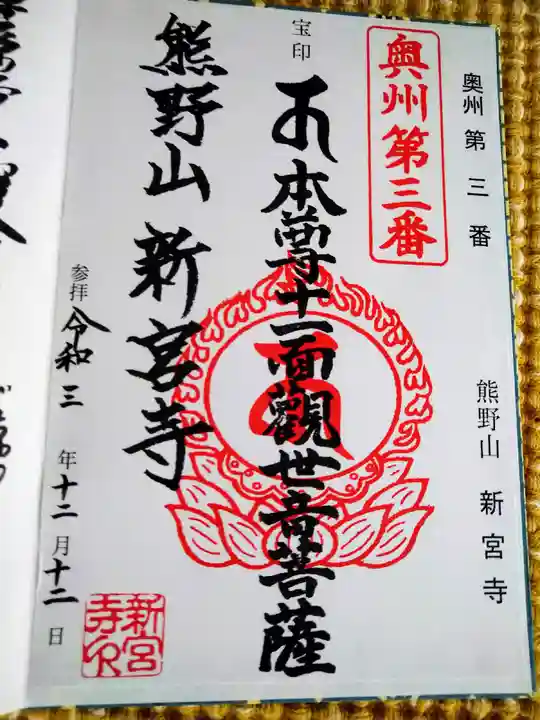 奥州第三番
熊野山 新宮寺
奥州第三番
本尊十一面觀世音菩薩
宝印
熊野山 新宮寺
参拝 令和 三 年 十二 月 十二 日
新宮寺印